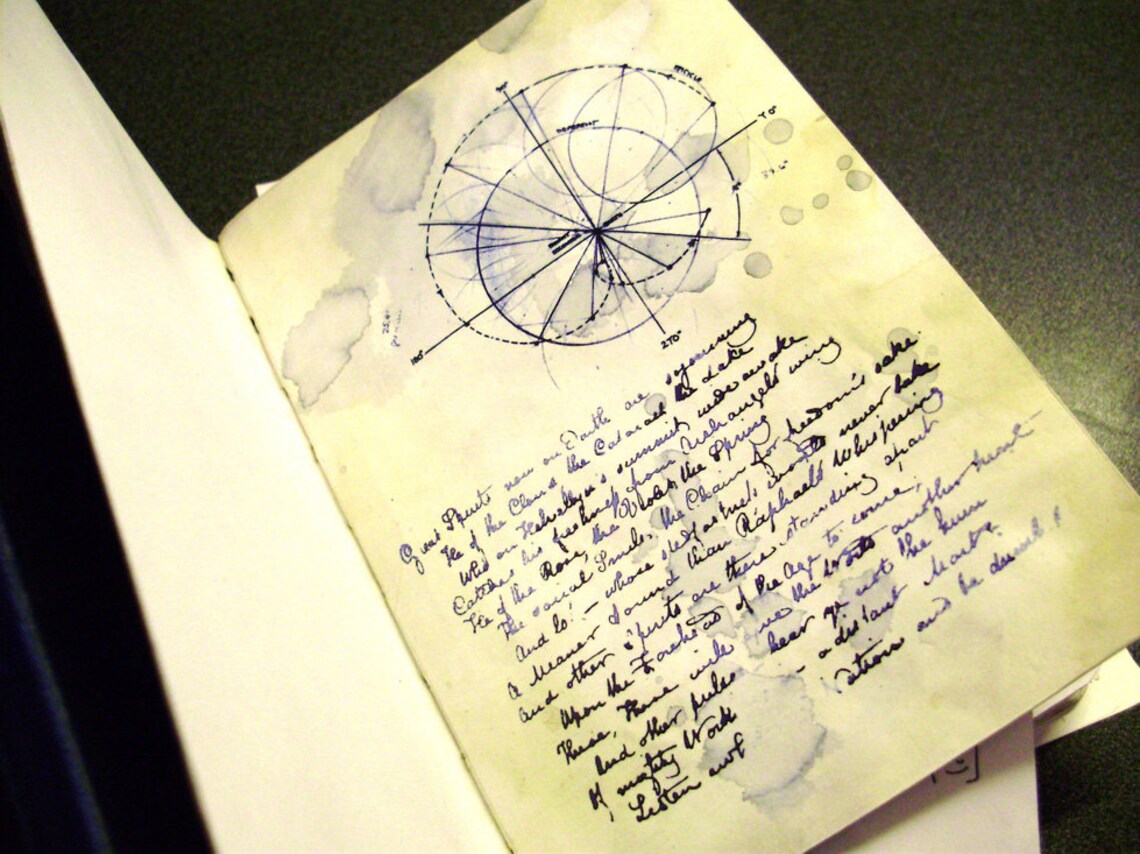 EPICYCLE
DEFERENT
90°
40°
37.6°
180°
270°
Great Spirits now on Earth are sojourning
He of the Cloud, the Cataract the Lake
Who on Helvellyn's summit wide awake
Catches his freshness from Archangel's wing
He of the Rose, the Violet, the Spring
The social Smile, the Chain for freedom's sake:
And lo! – whose stedfastness would never take
A Meaner Sound than Raphael's Whispering
And other Spirits are there standing apart
Upon the Forehead of the Age to come;
These, These will give the World another heart
And other pulses hear ye not the hum
Of mighty Work – a distant Mart?
Listen awh ations and be dumb!